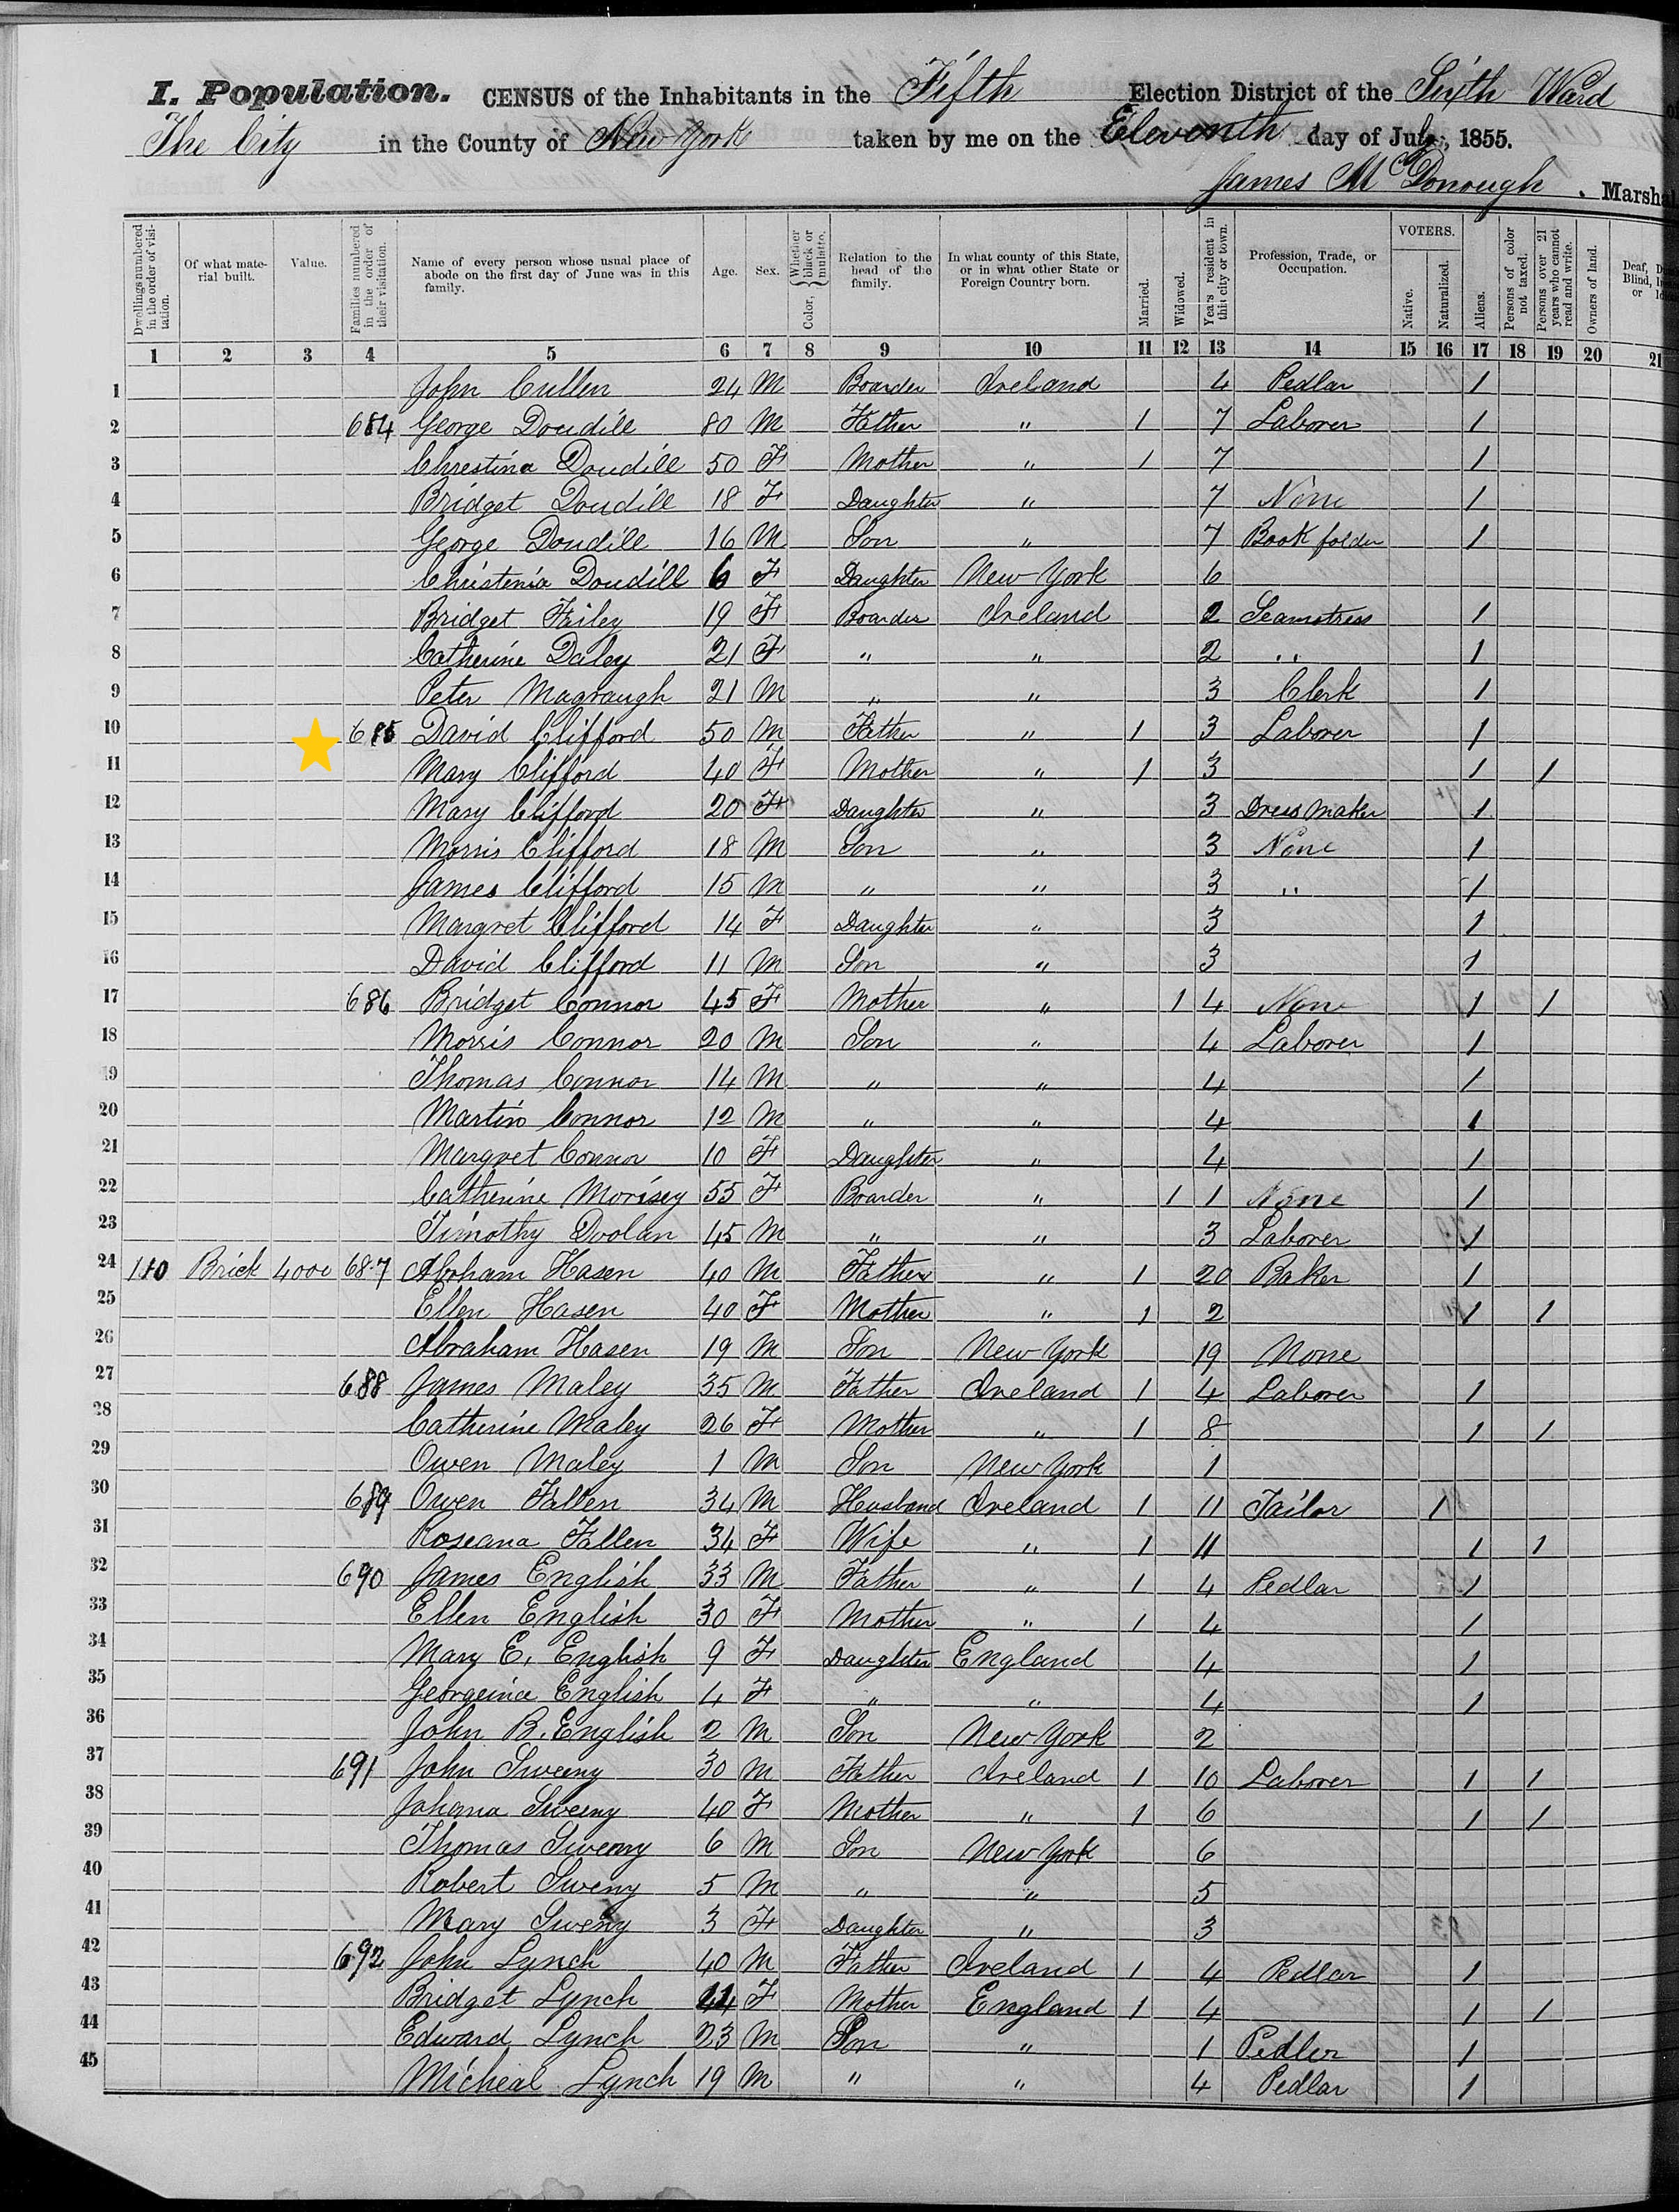 I. Population. CENSUS of the Inhabitants in the Fifth Election District of the Sixth Ward
The City in the County of New York taken by me on the Eleventh day of July, 1855.
James McDonough . Marshal
Dwellings numbered in the order of visitation. Of what material built. Value. Families numbered in the order of their visitation. Name of every person whose usual place of abode on the first day of June was in this family. Age. Sex. Color, Whether black or mulatto. Relation to the head of the family. In what county of this State, or in what other State or Foreign Country born. Married. Widowed. Years resident in this city or town. Profession, Trade, or Occupation. VOTERS. Native. Naturalized. Aliens. Persons of color not taxed. Persons over 21 years who cannot read and write. Owners of land. Deaf, Blind, or
1 2 3 4 5 6 7 8 9 10 11 12 13 14 15 16 17 18 19 20 21
1 John Cullen 24 M Boarder Ireland 4 Pedlar 1
2 684 George Doudill 80 M Father " 1 7 Laborer 1
3 Chrestina Doudill 50 F Mother " 1 7 1
4 Bridget Doudill 18 F Daughter " 7 None 1
5 George Doudill 16 M Son " 7 Book folder 1
6 Christenia Doudill 6 F Daughter New York 6
7 Bridget Failey 19 F Boarder Ireland 2 Seamstress 1
8 Catherine Daley 21 F " " 2 " 1
9 Peter Magraugh 21 M " " 3 Clerk 1
10 685 David Clifford 50 M Father " 1 3 Laborer 1
11 Mary Clifford 40 F Mother " 1 3 1 1
12 Mary Clifford 20 F Daughter " 3 Dress Maker 1
13 Morris Clifford 18 M Son " 3 None 1
14 James Clifford 15 M " " 3 " 1
15 Margret Clifford 14 F Daughter " 3 1
16 David Clifford 11 M Son " 3 1
17 686 Bridget Connor 45 F Mother " 1 4 None 1 1
18 Morris Connor 20 M Son " 4 Laborer 1
19 Thomas Connor 14 M " " 4 1
20 Martin Connor 12 M " " 4 1
21 Margret Connor 10 F Daughter " 4 1
22 Catherine Morisey 55 F Boarder " 1 1 None 1
23 Timothy Doolan 45 M " " 3 Laborer 1
24 110 Brick 4000 687 Abraham Hasen 40 M Father " 1 20 Baker 1
25 Ellen Hasen 40 F Mother " 1 2 1 1
26 Abraham Hasen 19 M Son New York 19 None
27 688 James Maley 35 M Father Ireland 1 4 Laborer 1
28 Catherine Maley 26 F Mother " 1 8 1 1
29 Owen Maley 1 M Son New York 1
30 689 Owen Fallen 34 M Husband Ireland 1 11 Tailor 1
31 Roseana Fallen 34 F Wife " 1 11 1 1
32 690 James English 33 M Father " 1 4 Pedlar 1
33 Ellen English 30 F Mother " 1 4 1
34 Mary E. English 9 F Daughter England 4 1
35 Georgeina English 4 F " " 4 1
36 John B. English 2 M Son New York 2
37 691 John Sweeny 30 M Father Ireland 1 10 Laborer 1 1
38 Johana Sweeny 40 F Mother " 1 6 1 1
39 Thomas Sweeny 6 M Son New York 6
40 Robert Sweny 5 M " " 5
41 Mary Sweny 3 F Daughter " 3
42 692 John Lynch 40 M Father Ireland 1 4 Pedlar 1
43 Bridget Lynch 44 F Mother England 1 4 1 1
44 Edward Lynch 23 M Son " 1 Pedler 1
45 Micheal Lynch 19 M " " 4 Pedlar 1